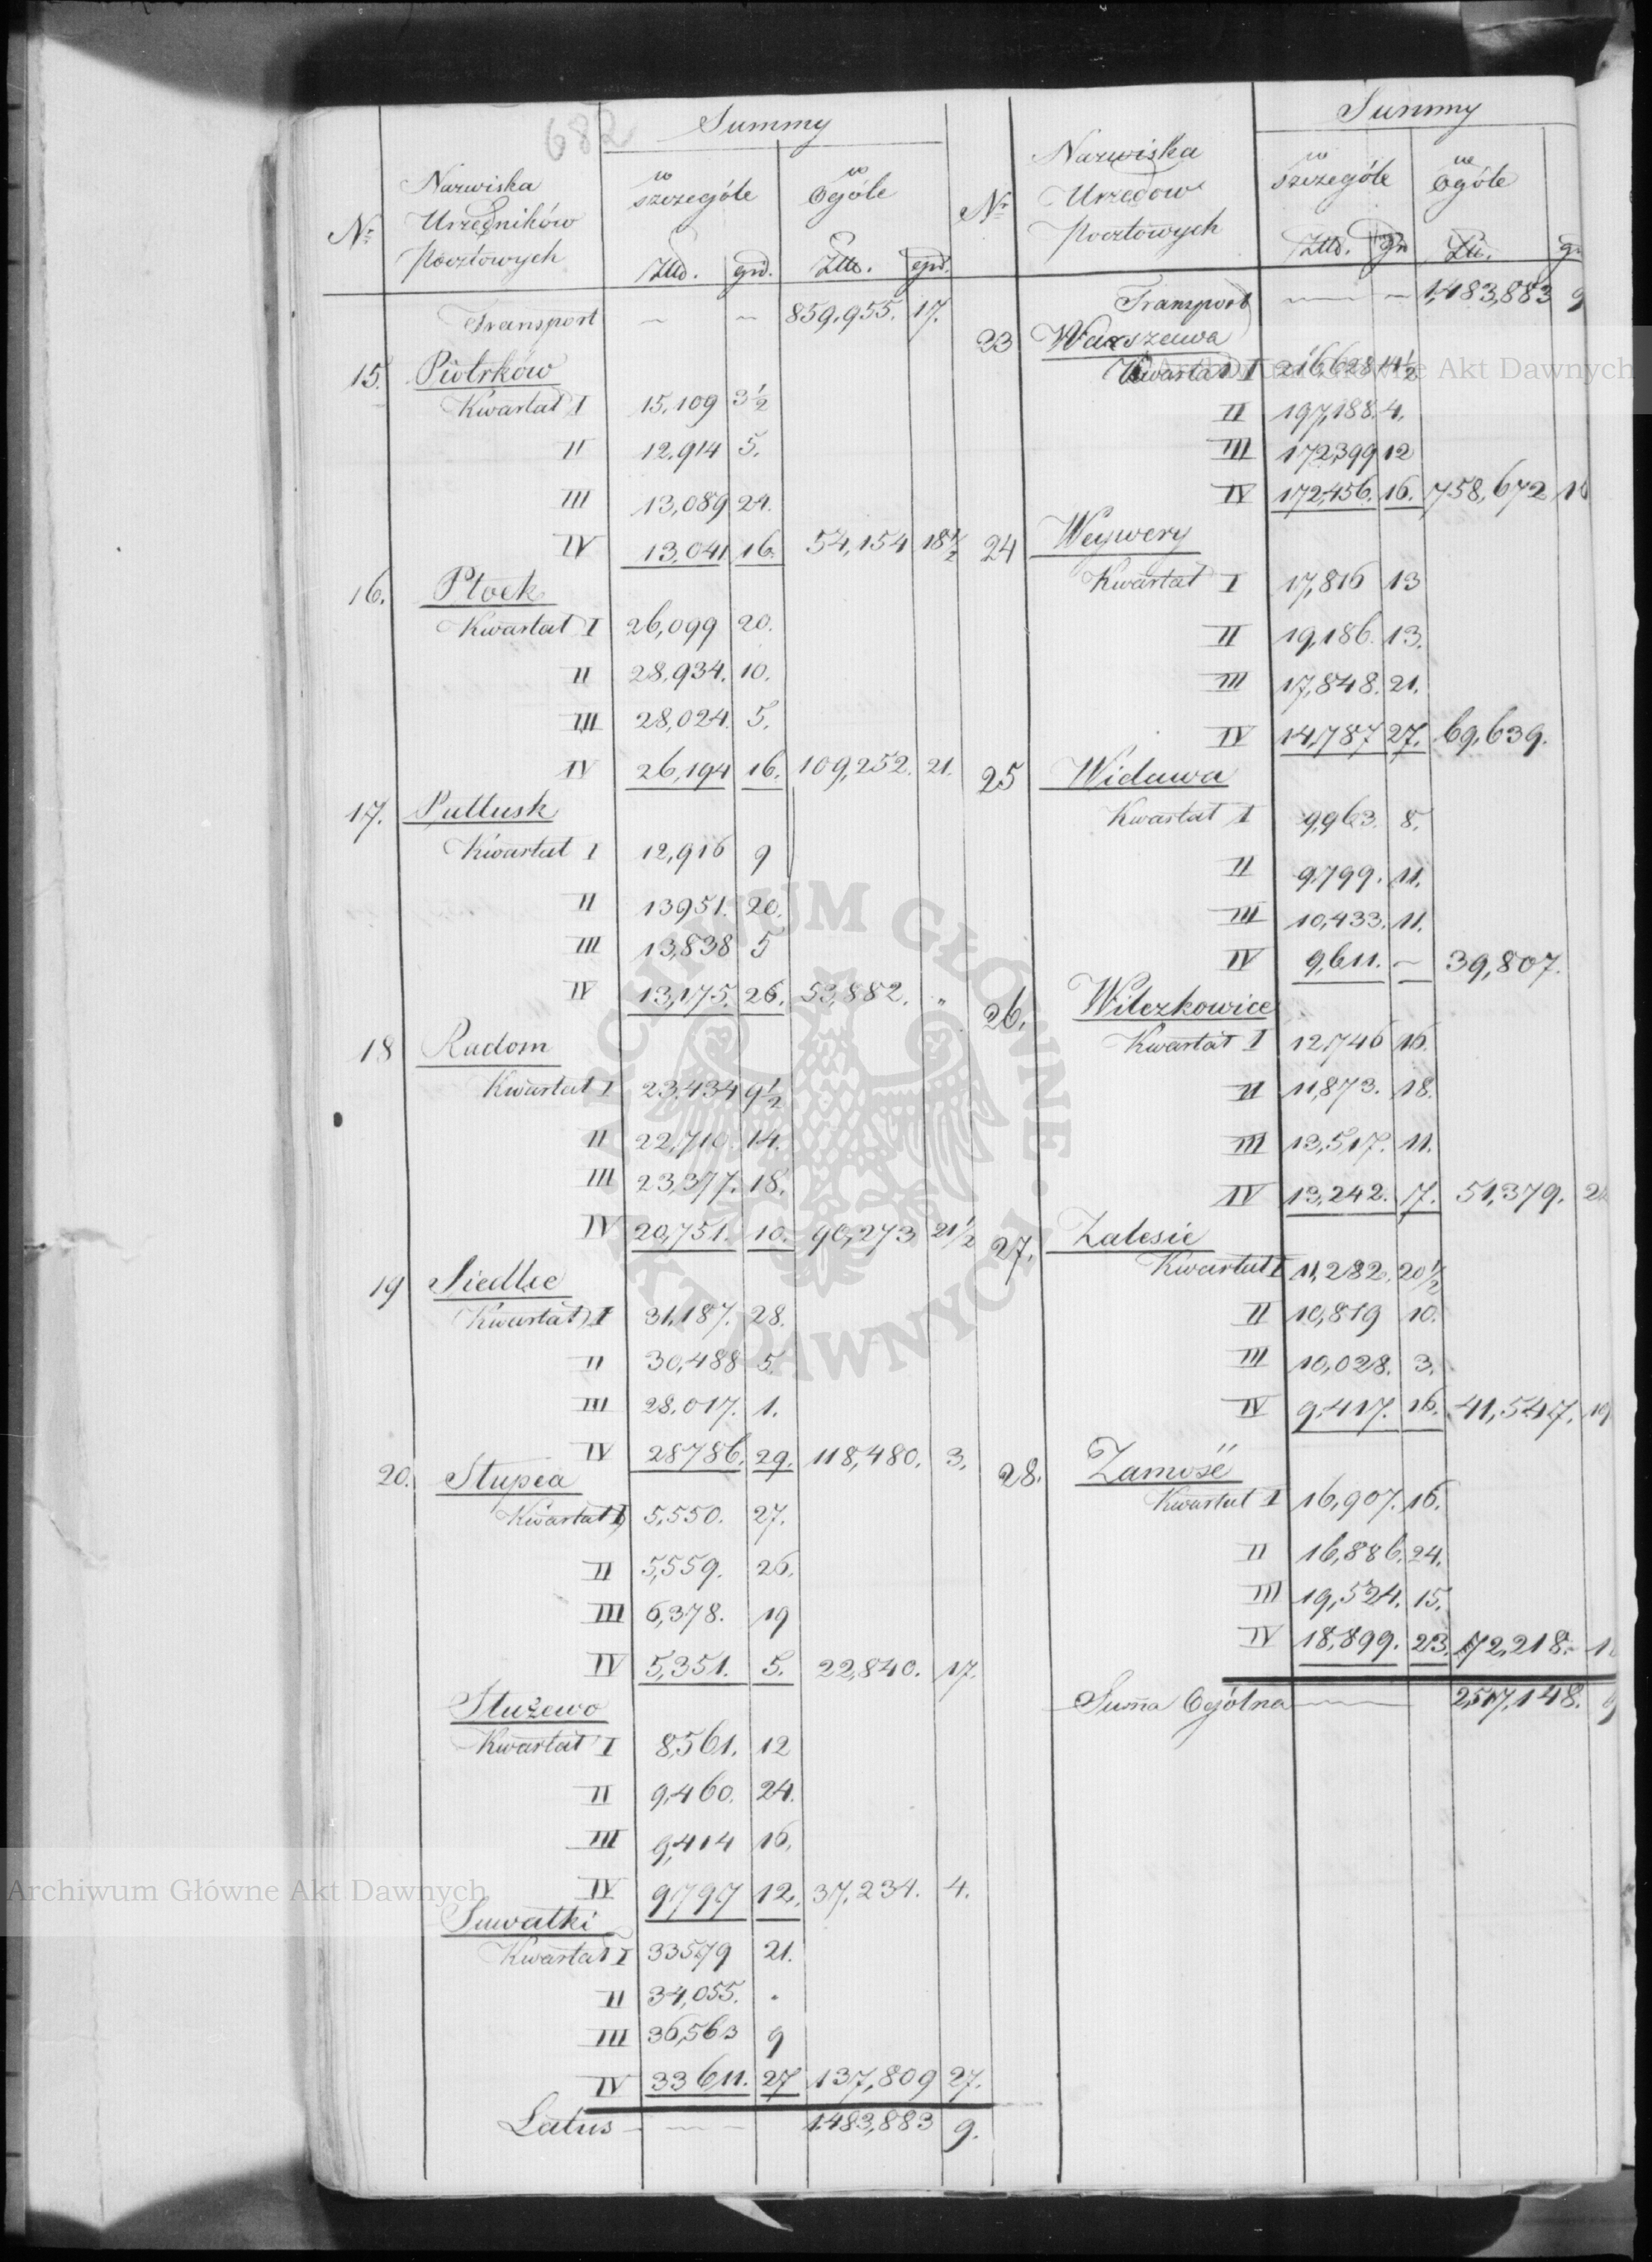 682
Summy
Nr
Nazwiska
Urzędników
Pocztowych
w
szczególe
w
Ogóle
Złtd. grd. Złtd. grd.
Transport — — 859,955. 17.
15. Piotrków
Kwartał I 15,109 3½
II 12,914 5.
III 13,089 24.
IV 13,041 16. 54,154 18½
16. Płock
Kwartał I 26,099 20.
II 28,934. 10.
III 28,024. 5.
IV 26,194 16. 109,252. 21.
17. Pułtusk
Kwartał I 12,916 9
II 13951. 20.
III 13,838 5
IV 13,175. 26. 53,882. „
18 Radom
Kwartał I 23,434 9½
II 22,710. 14.
III 23,377. 18.
IV 20,751. 10. 90,273 21½
19 Siedlce
Kwartał I 31,187. 28.
II 30,488 5.
III 28,017. 1.
IV 28786. 29. 118,480. 3.
20. Słupca
Kwartał I 5,550. 27.
II 5,559. 26.
III 6,378. 19
IV 5,351. 5. 22,840. 17.
Służewo
Kwartał I 8,561. 12
II 9,460. 24.
III 9,414 16.
IV 9797 12. 37,234. 4.
Suwałki
Kwartał I 33579 21.
II 34,055. .
III 36,563 9
IV 33611. 27 137,809 27.
Latus — — — 1483,883 9.
Summy
Nr
Nazwiska
Urzędow
Pocztowych
w
szczególe
we
Ogóle
Złtd. gr Złt. gr
Transport — — 1,483,883 9
23 Warszawa
Kwartał I 216,628 14½
II 197,188. 4.
III 172,399 12
IV 172,456. 16. 758,672
24 Weywery
Kwartał I 17,816 13
II 19,186. 13.
III 17,848. 21.
IV 14,787 27. 69,639.
25 Widawa
Kwartał I 9,963. 8.
II 9,799. 11.
III 10,433. 11.
IV 9,611. — 39,807.
26. Wilczkowice
Kwartał I 12,746 16.
II 11,873. 18.
III 13,517. 11.
IV 13,242. 17. 51,379.
27. Zalesie
Kwartał I 11,282. 20½
II 10,819 10.
III 10,028. 3.
IV 9,417. 16. 41,547. 19
28. Zamość
Kwartał I 16,907. 16.
II 16,886. 24.
III 19,524. 15.
IV 18,899. 23. 72,218.
Suma Ogólna — 2,517,148. 9
Archiwum Główne Akt Dawnych
Archiwum Główne Akt Dawnych
ARCHIWUM GŁÓWNE AKT DAWNYCH